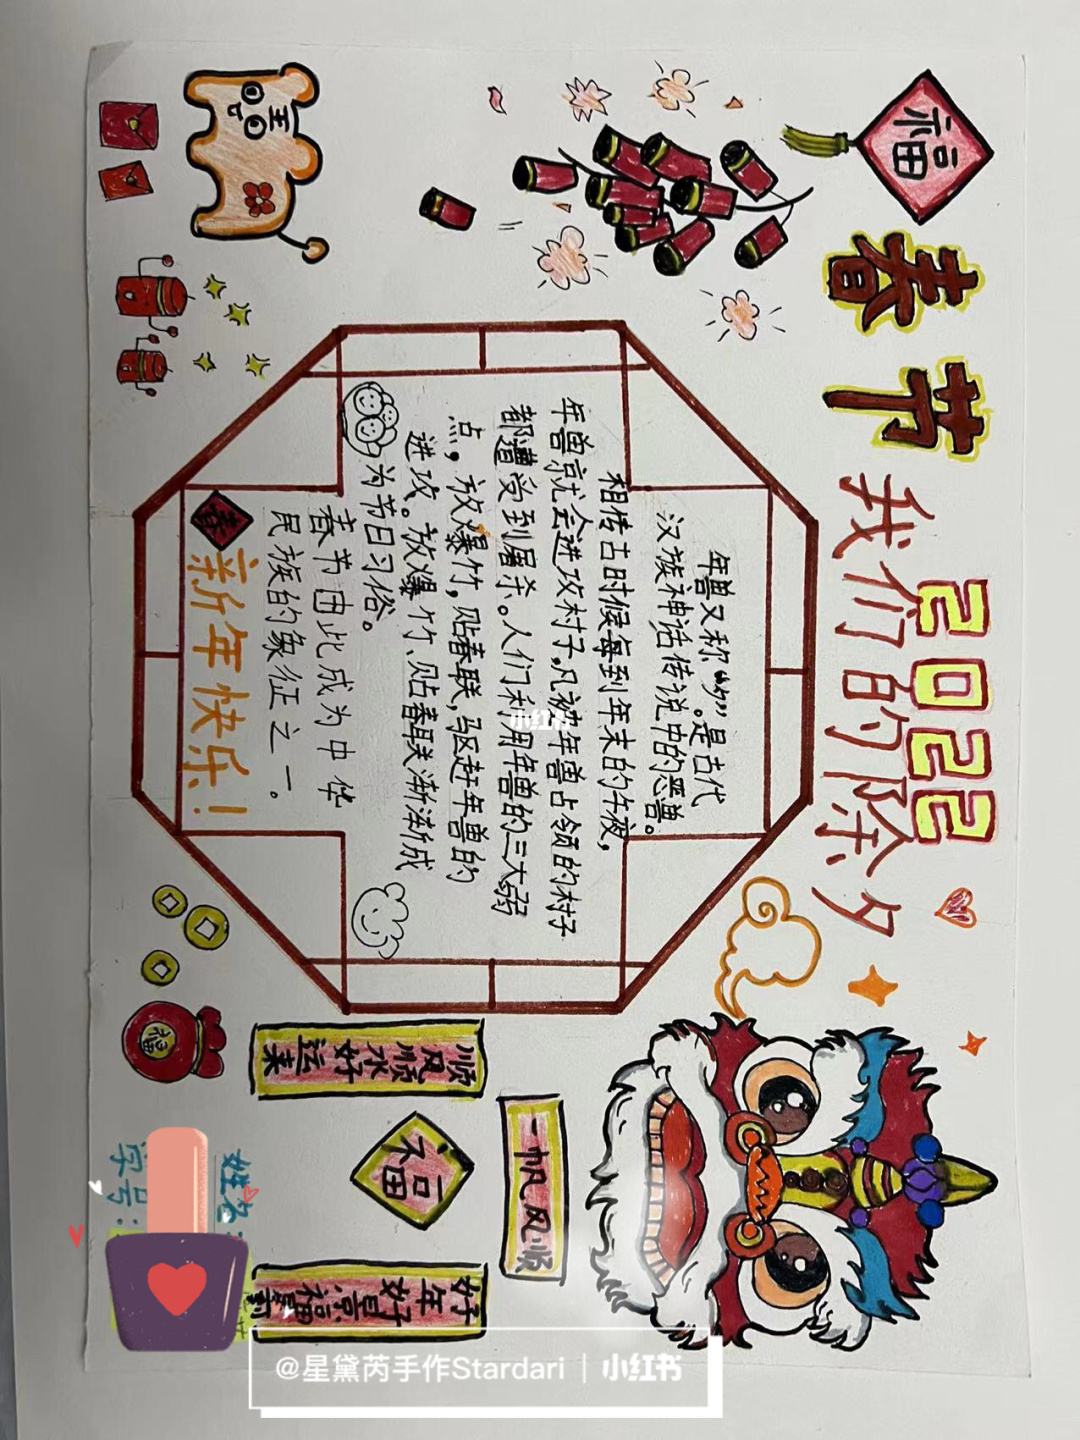 福
春节
2022
我们的除夕
年兽又称“夕”。是古代
汉族神话传说中的恶兽。
相传古时候每到年末的午夜，
年兽就会进攻村子。凡被年兽占领的村子
都遭受到屠杀。人们利用年兽的三大弱
点，放爆竹，贴春联，驱赶年兽的
进攻。放爆竹、贴春联渐渐成
为节日习俗。
春节因此成为中华
民族的象征之一。
春
新年快乐！
王
一帆风顺
顺风顺水好运来
福
好年好景福
福
姓名
学号：
小红书
@星黛芮手作Stardari｜小红书